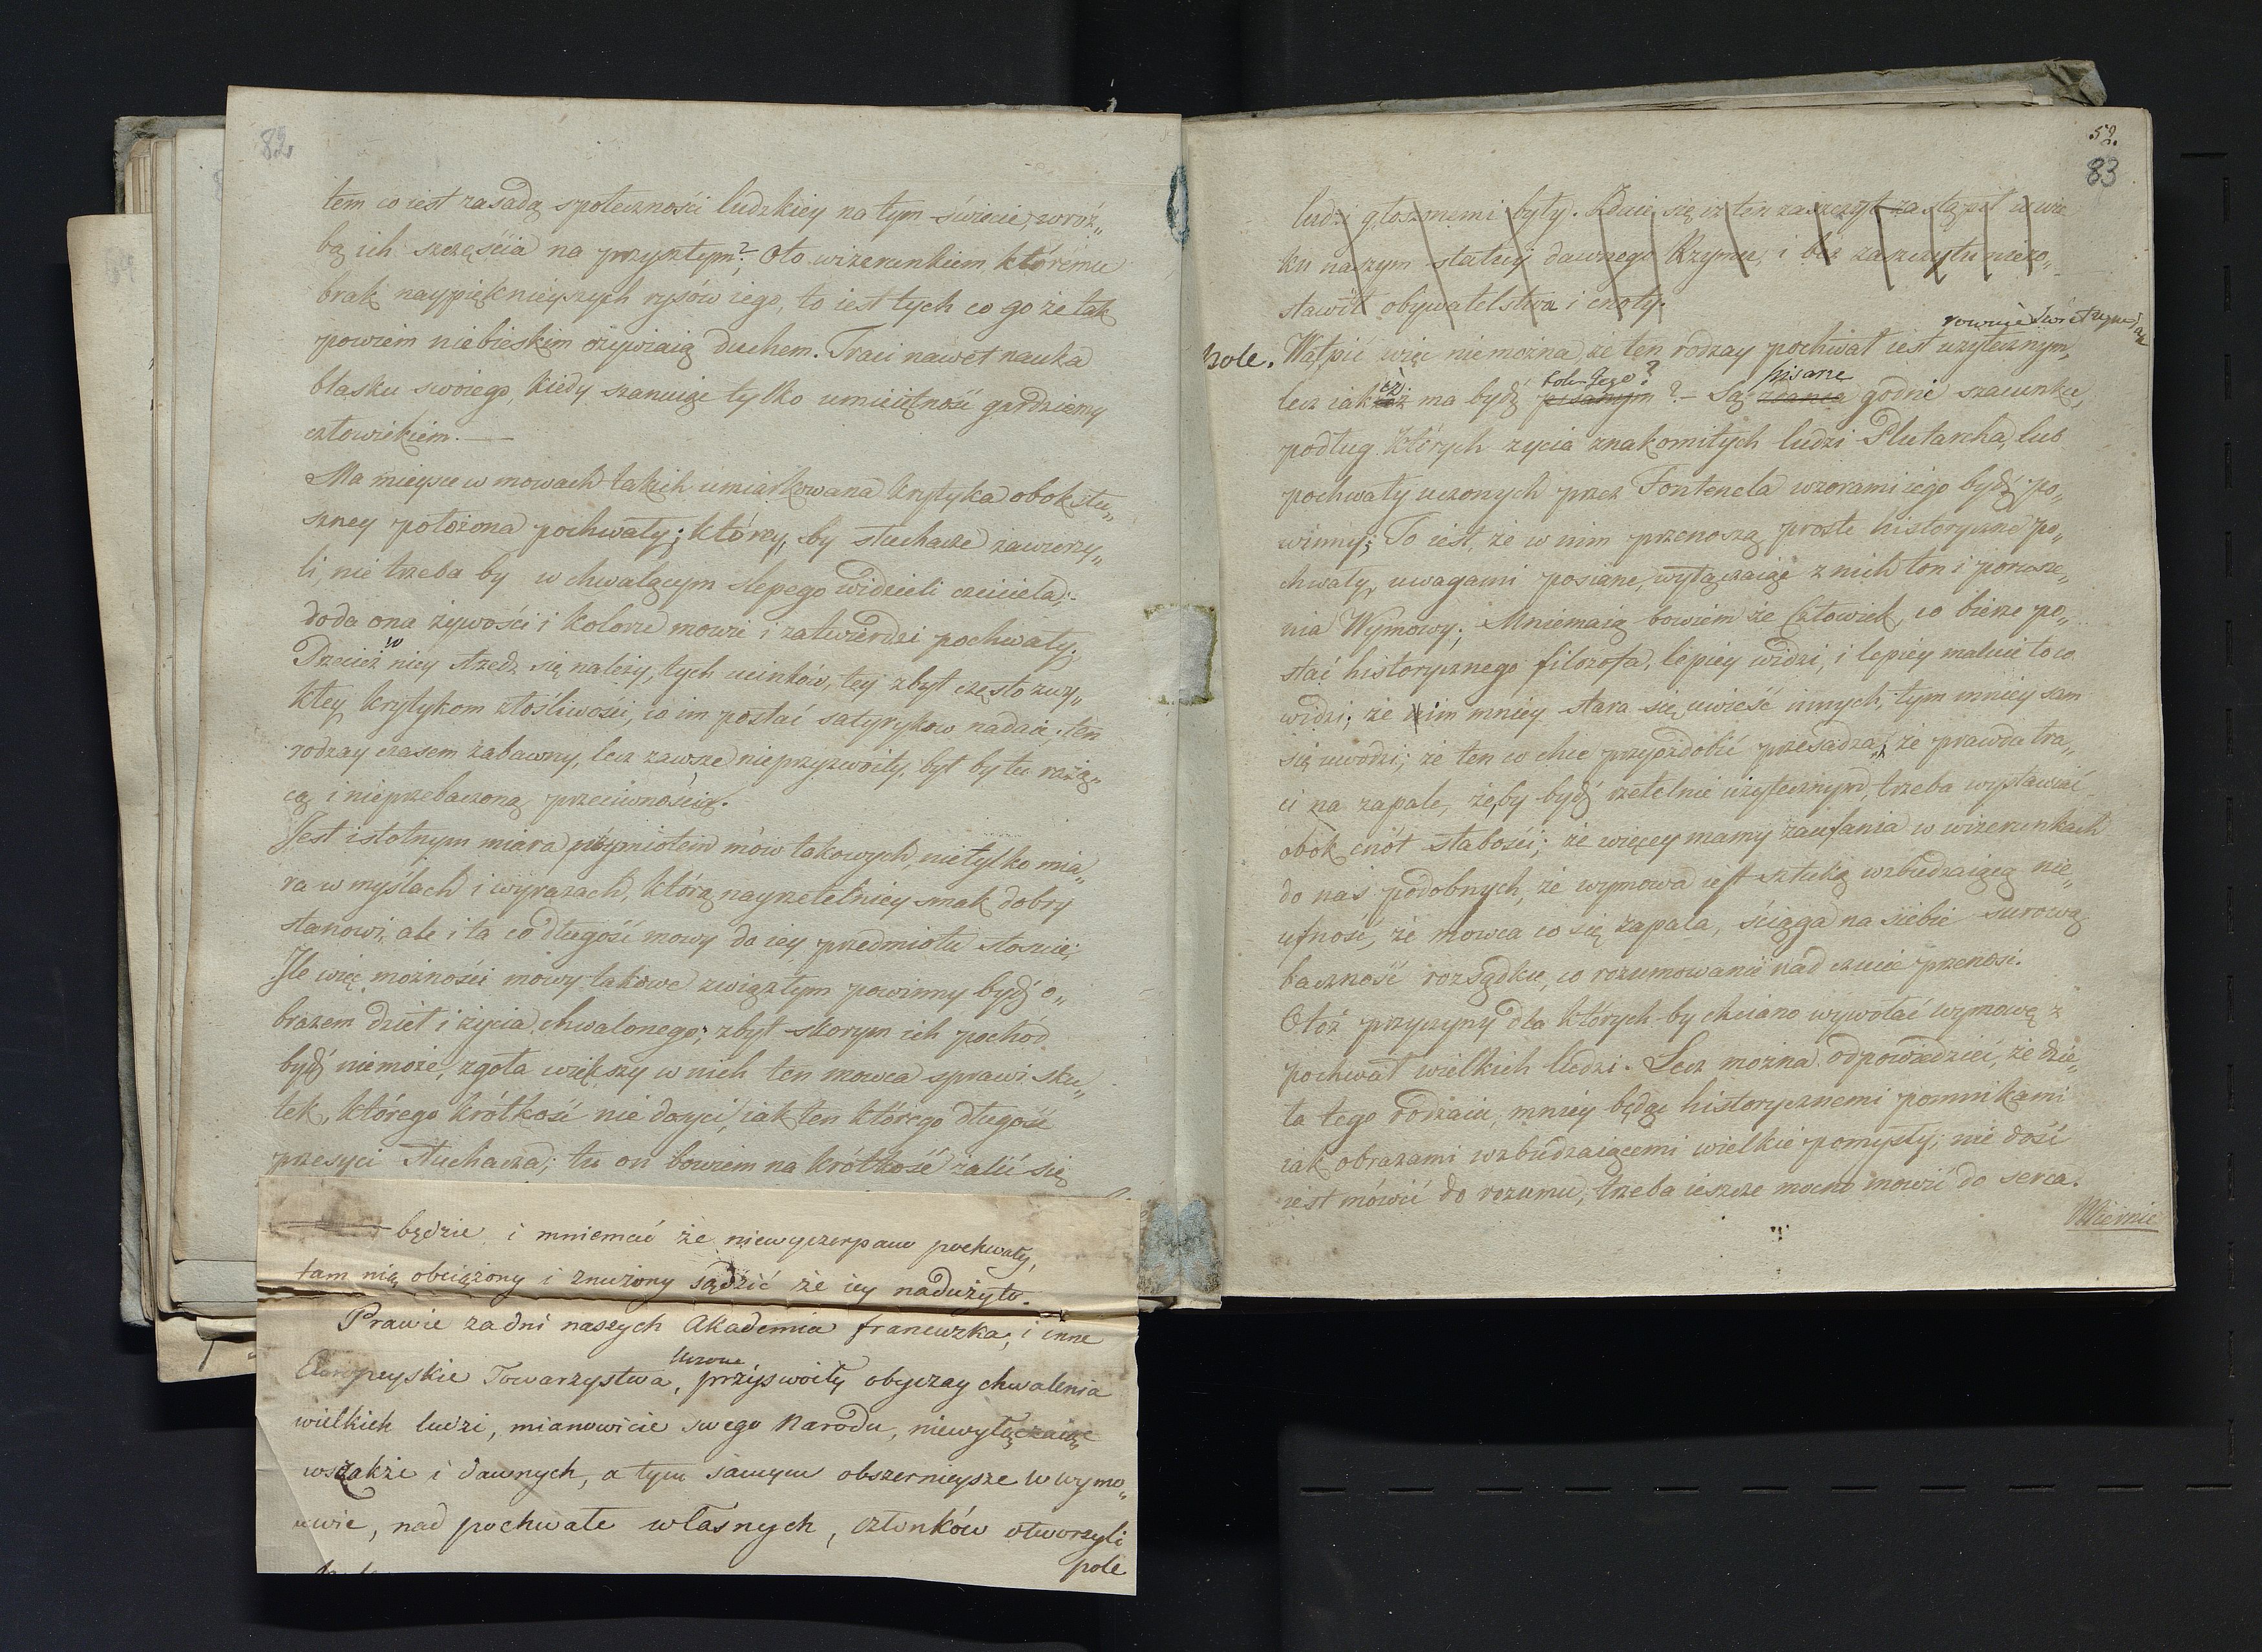 82
tem co iest zasadą społeczności ludzkiey na tym świecie, wróż„
bą ich szczęścia na przyszłym? Oto wizerunkiem, któremu
brak naypięknieyszych rysów iego, to iest tych co go że tak
powiem niebieskim ożywiaią duchem. Traci nawet nauka
blasku swoiego, kiedy szanuiąc tylko umieiętność gardziemy
człowiekiem.—
Ma mieysce w mowach takich umiarkowana krytyka obok słu„
szney położona pochwały; którzy, by słuchacze zawierzy„
li, nie trzeba by w chwalącym slepego widzieli czciciela;
doda ona żywości i kolorze mowie i zatwierdzi pochwały.
Przecież w niey strzedz się należy, tych ucinków, tey zbyt często zwy„
kłey krytykom złośliwości, co im postać satyryków nadaie; ten
rodzay czasem zabawny, lecz zawsze nieprzyzwoity, był by tu rażą„
cą i nieprzebaczoną przeciwnością.
Jest istotnym miara przymiotem mów takowych, nie tylko mia„
ra w myślach i wyrazach, którą nayrzetelniey smak dobry
stanowi, ale i ta co długość mowy do iey przedmiotu stosuie;
Ile więc możności mowy takowe zwięzłym powinny bydź o„
brazem dzieł i życia chwalonego; zbyt skorym ich pochód
bydź niemoże, zgoła większy w nich ten mowca sprawi sku„
tek, którego krótkość nie dosyci, iak ten którego długość
przesyci słuchacza; tu on bowiem na krótkość żalić się
będzie i mniemać że niewyczerpano pochwały,
tam nią obciążony i znużony sądzić że iey nadużyto.
Prawie za dni naszych Akademia francuzka, i inne
Uczone
Europeyskie Towarzystwa, przyswoiły obyczay chwalenia
wielkich ludzi, mianowicie swego Narodu, niewyłączaiąc
wszakże i dawnych, a tym samym obszernieysze w wymo„
wie, nad pochwałe własnych, członków otworzyli
pole
52.
83
ludzi głosznemi były. Zdaie się iż ten zaszczyt zastąpił w wie
ku naszym statuy dawnego Rzymu, i bez zaszczytu niezo„
stawił obywatelstwa i cnoty.
pole. Wątpić więc niemożna, że ten rodzay pochwał iest użytecznym,
pisane
lecz iakież ma bydź pisanym? – Są zdania godne szacunku,
podług których życia znakomitych ludzi Plutarcha, lub
pochwały uczonych przez Fontenela wzorami iego bydź po„
winny; To iest, że w nim przenoszą proste historyczne po„
chwały, uwagami posiane, wyłączaiąc z nich ton i porusze„
nia Wymowy; Mniemaią bowiem że Człowiek, co bierze po„
stać historycznego filozofa, lepiey widzi, i lepiey maluie to co
widzi; że im mniey stara się uwieść innych, tym mniey sam
się uwodzi; że ten co chce przyozdobić przesadza, że prawda tra„
ci na zapale, żeby bydź rzetelnie użytecznym, trzeba wystawiać
obok cnót słabości; że więcey mamy zaufania w wizerunkach
do nas podobnych, że wymowa iest sztuką wzbudzaiącą nie„
ufność, że mowca co się zapala, ściąga na siebie surową
baczność rozsądku, co rozumowanie nad czucie przenosi.
Otóż przyczyny dla których by chciano wywołać wymowę z
pochwał wielkich ludzi. Lecz można odpowiedzieć, że dzie„
ła tego rodzaiu, mniey będąc historycznemi pomnikami
iak obrazami wzbudzaiącemi wielkie pomysły; nie dość
iest mówić do rozumu, trzeba ieszcze mocno mowić do serca.